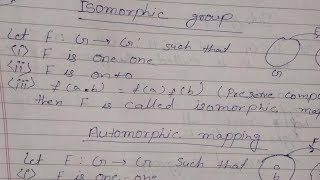 Isomorphic group
Let F : G → G' such that
(i) F is one-one
(ii) F is onto
(iii) f(a·b) = f(a) f(b) (Preserve compo
then F is called isomorphic ma
G
Automorphic mapping
Let F : G → G such that
(i) F is one-one
F
a
b